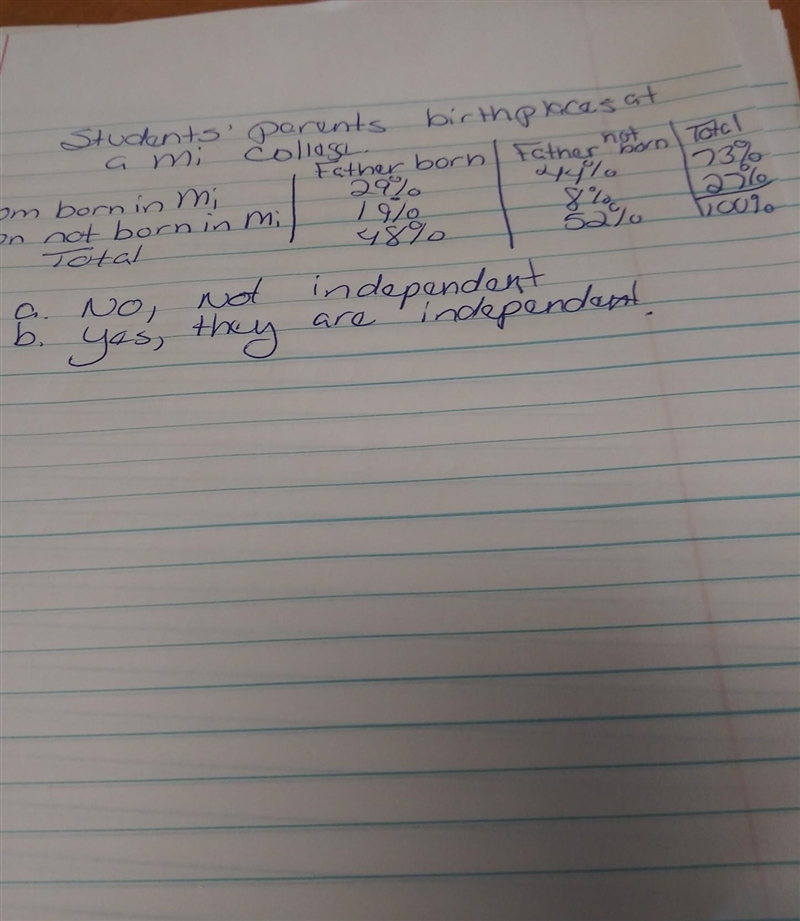 Students' parents birthplaces at
a mi college.
Father born | Father not born | Total
om born in Mi | 29% | 44% | 73%
on not born in Mi | 19% | 8% | 27%
Total | 48% | 52% | 100%
a. No, Not independent
b. yes, they are independent.